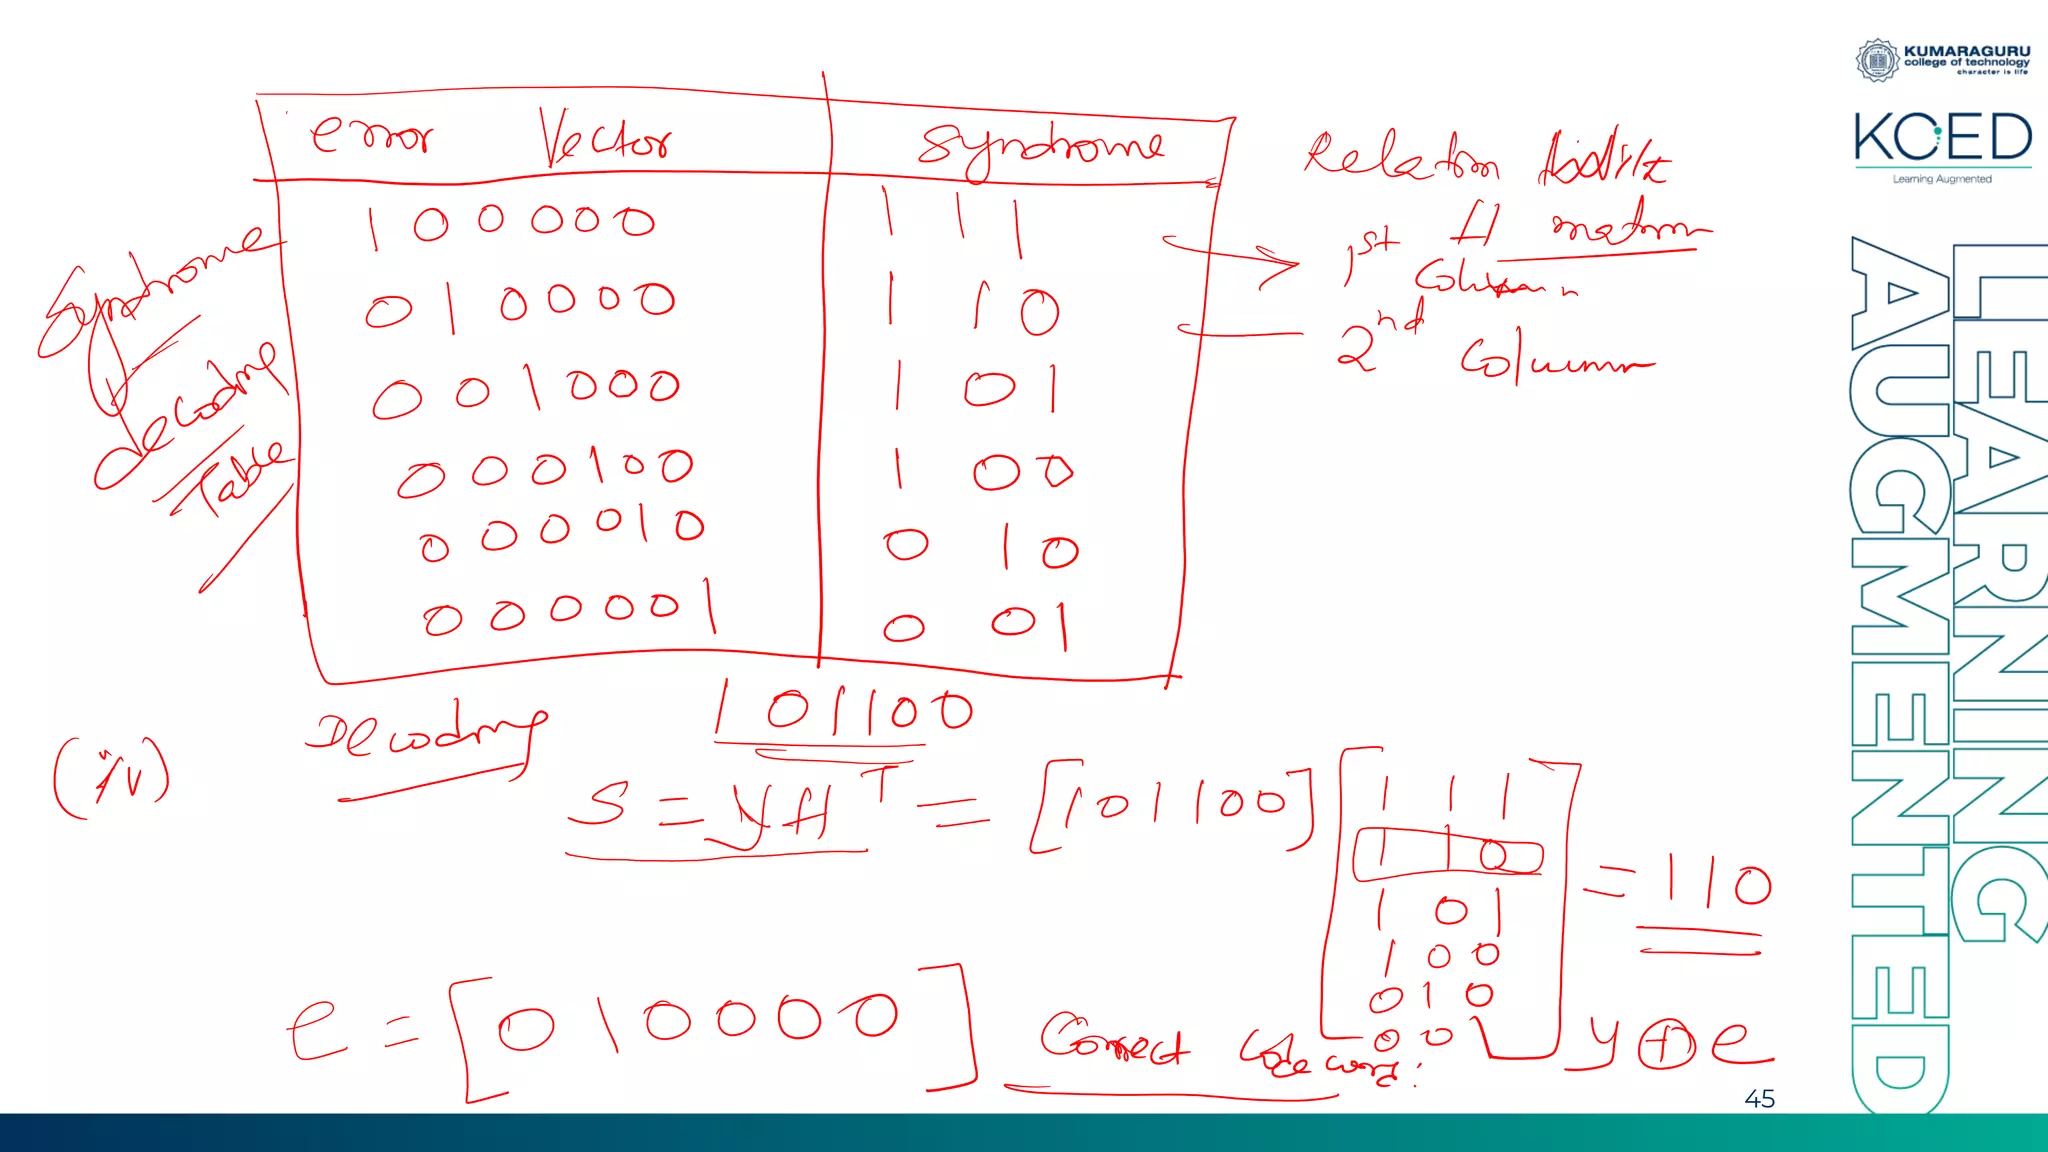 KUMARAGURU
college of technology
character is life
KCED
Learning Augmented
LEARNING
AUGMENTED
error Vector Syndrome
100000 111
010000 110
001000 101
000100 100
000010 010
000001 001
Syndrome
decoding
Table
Relation
H matrix
1st Column
2nd Column
(iv) Decoding 101100
S = yH^T = [101100]
1 1 1
1 1 0
1 0 1
1 0 0
0 1 0
0 0
= 110
e = [010000] Correct code word: y ⊕ e
45